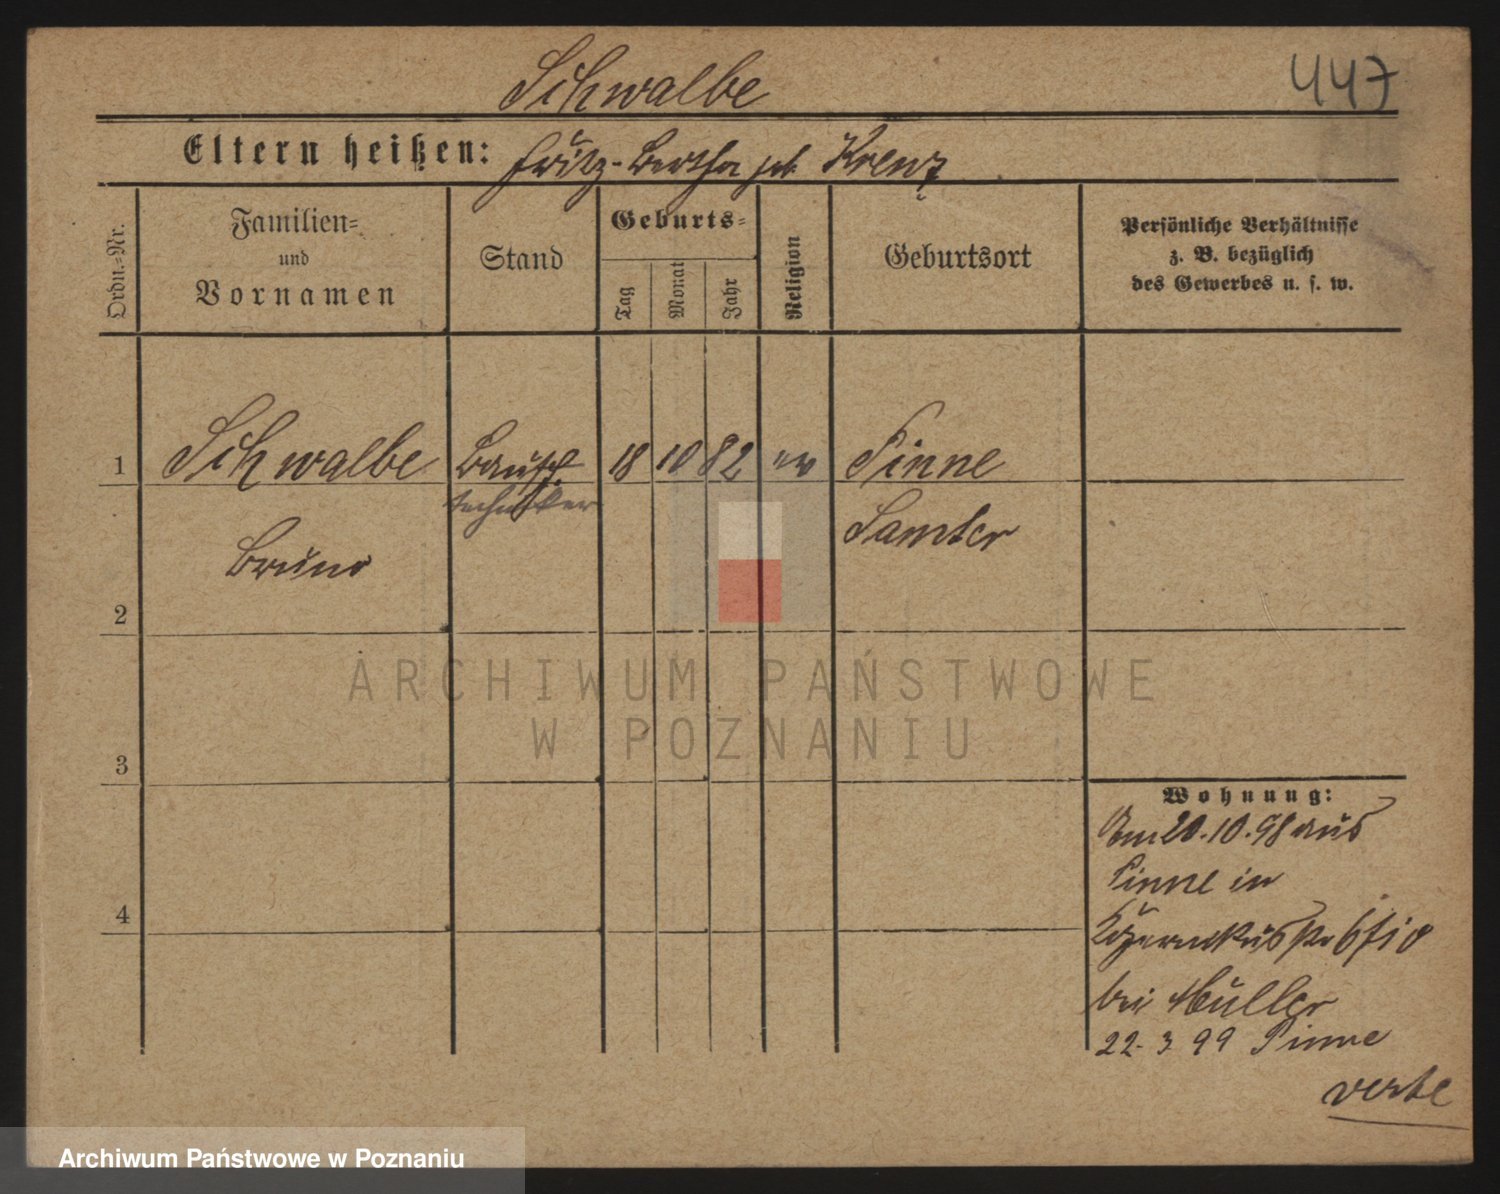 Schwalbe
447
Eltern heißen: Fritz - Bertha geb. Krenz
Ordn.-Nr.
Familien-
und
Vornamen
Stand
Geburts-
Tag
Monat
Jahr
Religion
Geburtsort
Persönliche Verhältnisse
z. B. bezüglich
des Gewerbes u. s. w.
1 Schwalbe Bausch. 18 10 82 ev Pinne
techniker
Samter
Bruno
2
3
4
Wohnung:
Am 20.10.98 aus
Pinne in
bei Müller
22. 3 99 Pinne
verte
ARCHIWUM PAŃSTWOWE
W POZNANIU
Archiwum Państwowe w Poznaniu